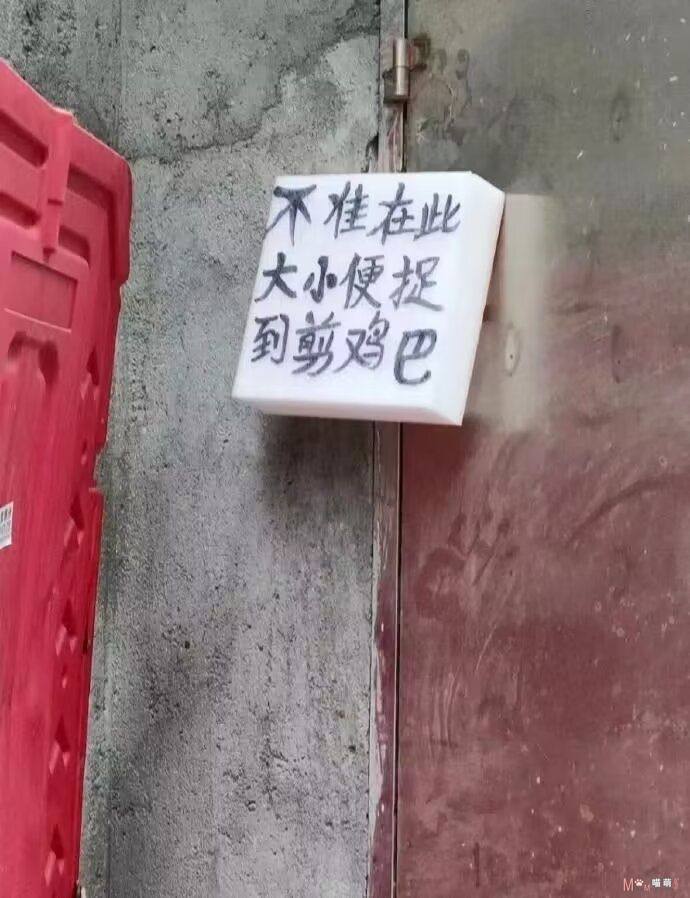 不准在此
大小便捉
到剪鸡巴
喵萌